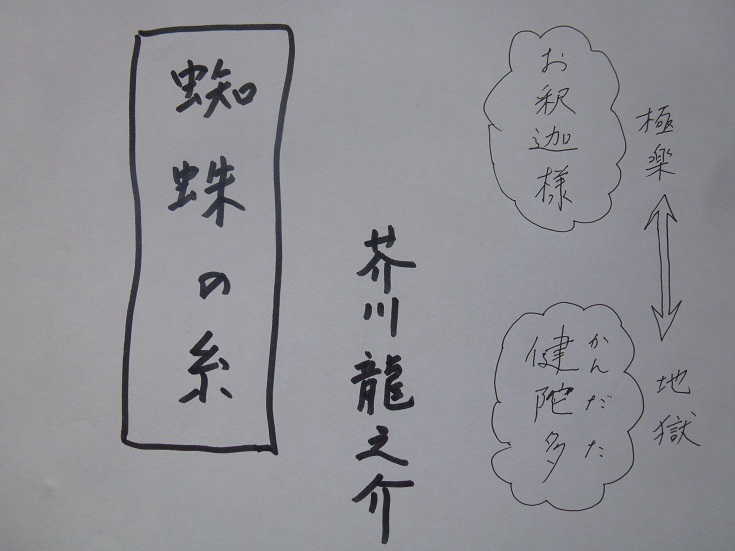 極楽
地獄
お釈迦様
かんだた
健陀多
芥川龍之介
蜘蛛の糸